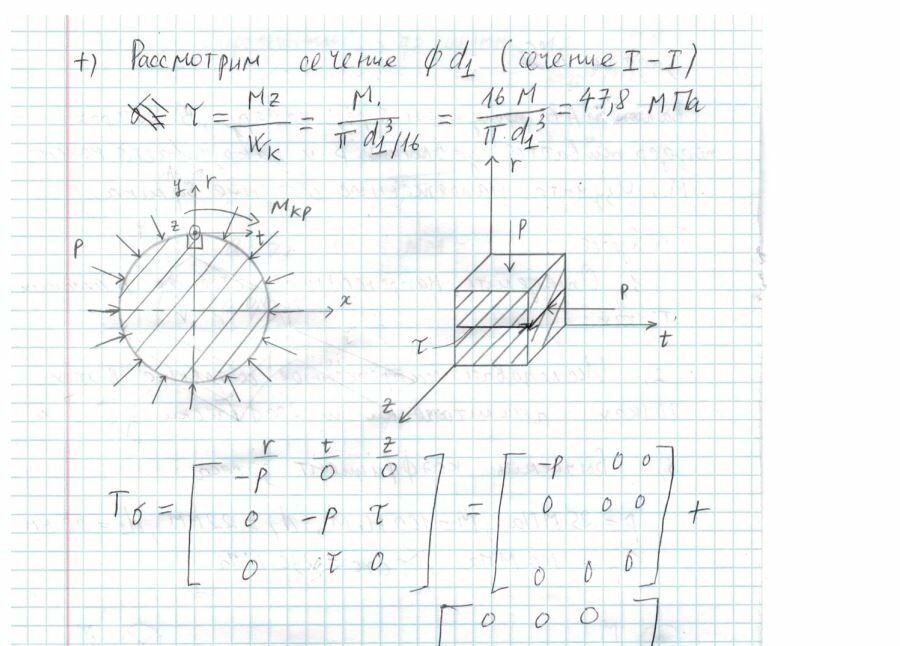 +) Рассмотрим сечение ϕ d₁ (сечение I-I)
τ = Mz/Wк = M/(π d₁³/16) = 16 M/(π d₁³) = 47,8 МПа
y r Mкр
z t
P
x
r
P
P
τ
t
z
r t z
Tσ = [-P 0 0; 0 -P τ; 0 τ 0] = [-P 0 0; 0 0 0; 0 0 0] +
[0 0 0